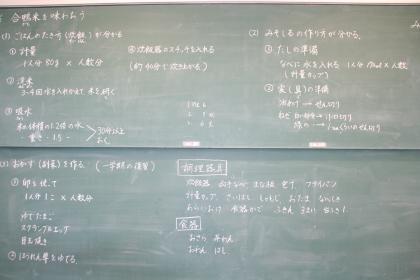 合鴨米を味わおう
(1) ごはんのたき方(炊飯)が分かる
① 計量
1人分 80g × 人数分
② 洗米
3~4回水を入れかえて 米を研ぐ
③ 吸水
米の体積の1.2倍の水
・重さ・1.5
30分以上
おく
④ 炊飯器のスイッチを入れる
(約40分で炊き上がる)
(2) みそしるの作り方が分かる。
① だしの準備
なべに水を入れる 1人分
(計量カップ)
② 実(具)の準備
油あげ → せん切り
ねぎ 白い部分→
緑の
おかず(副菜)を作る (一学期の復習)
卵を使って
1人分 1こ × 人数分
ゆでたまご
スクランブルエッグ
目玉焼き
ほうれん草をゆでる
調理器具
炊飯器 なべ まな板 包丁 フライパン
計量カップ さいばし しゃもじ おたま
ふきん
食器
おさら
おわん はし